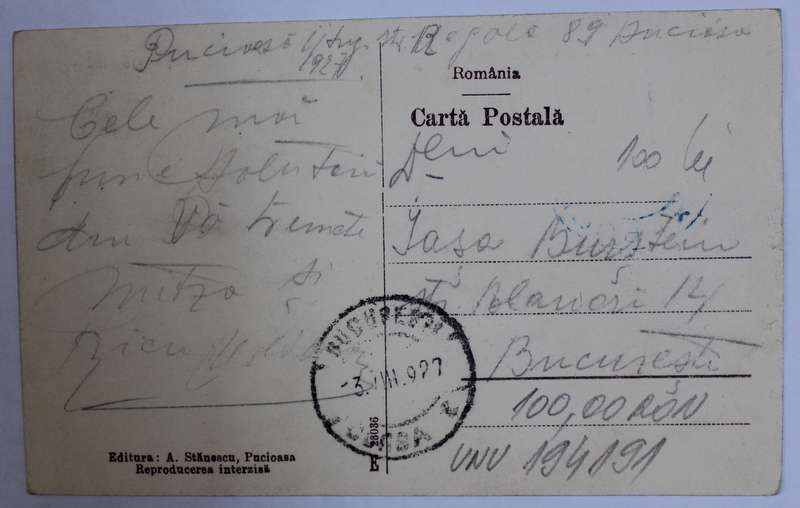 Pucioasa 1927 str. Regală 89 Pucioasa
Cele mai
bune salutări
din Vă trimete
Mitza și
România
Cartă Postală
100 lei
Iașa Burștein
str. Blanări 14
București
100,00 RON
UNU 194191
BUCUREȘTI
3. VIII. 927
28036
E
Editura: A. Stănescu, Pucioasa
Reproducerea interzisă